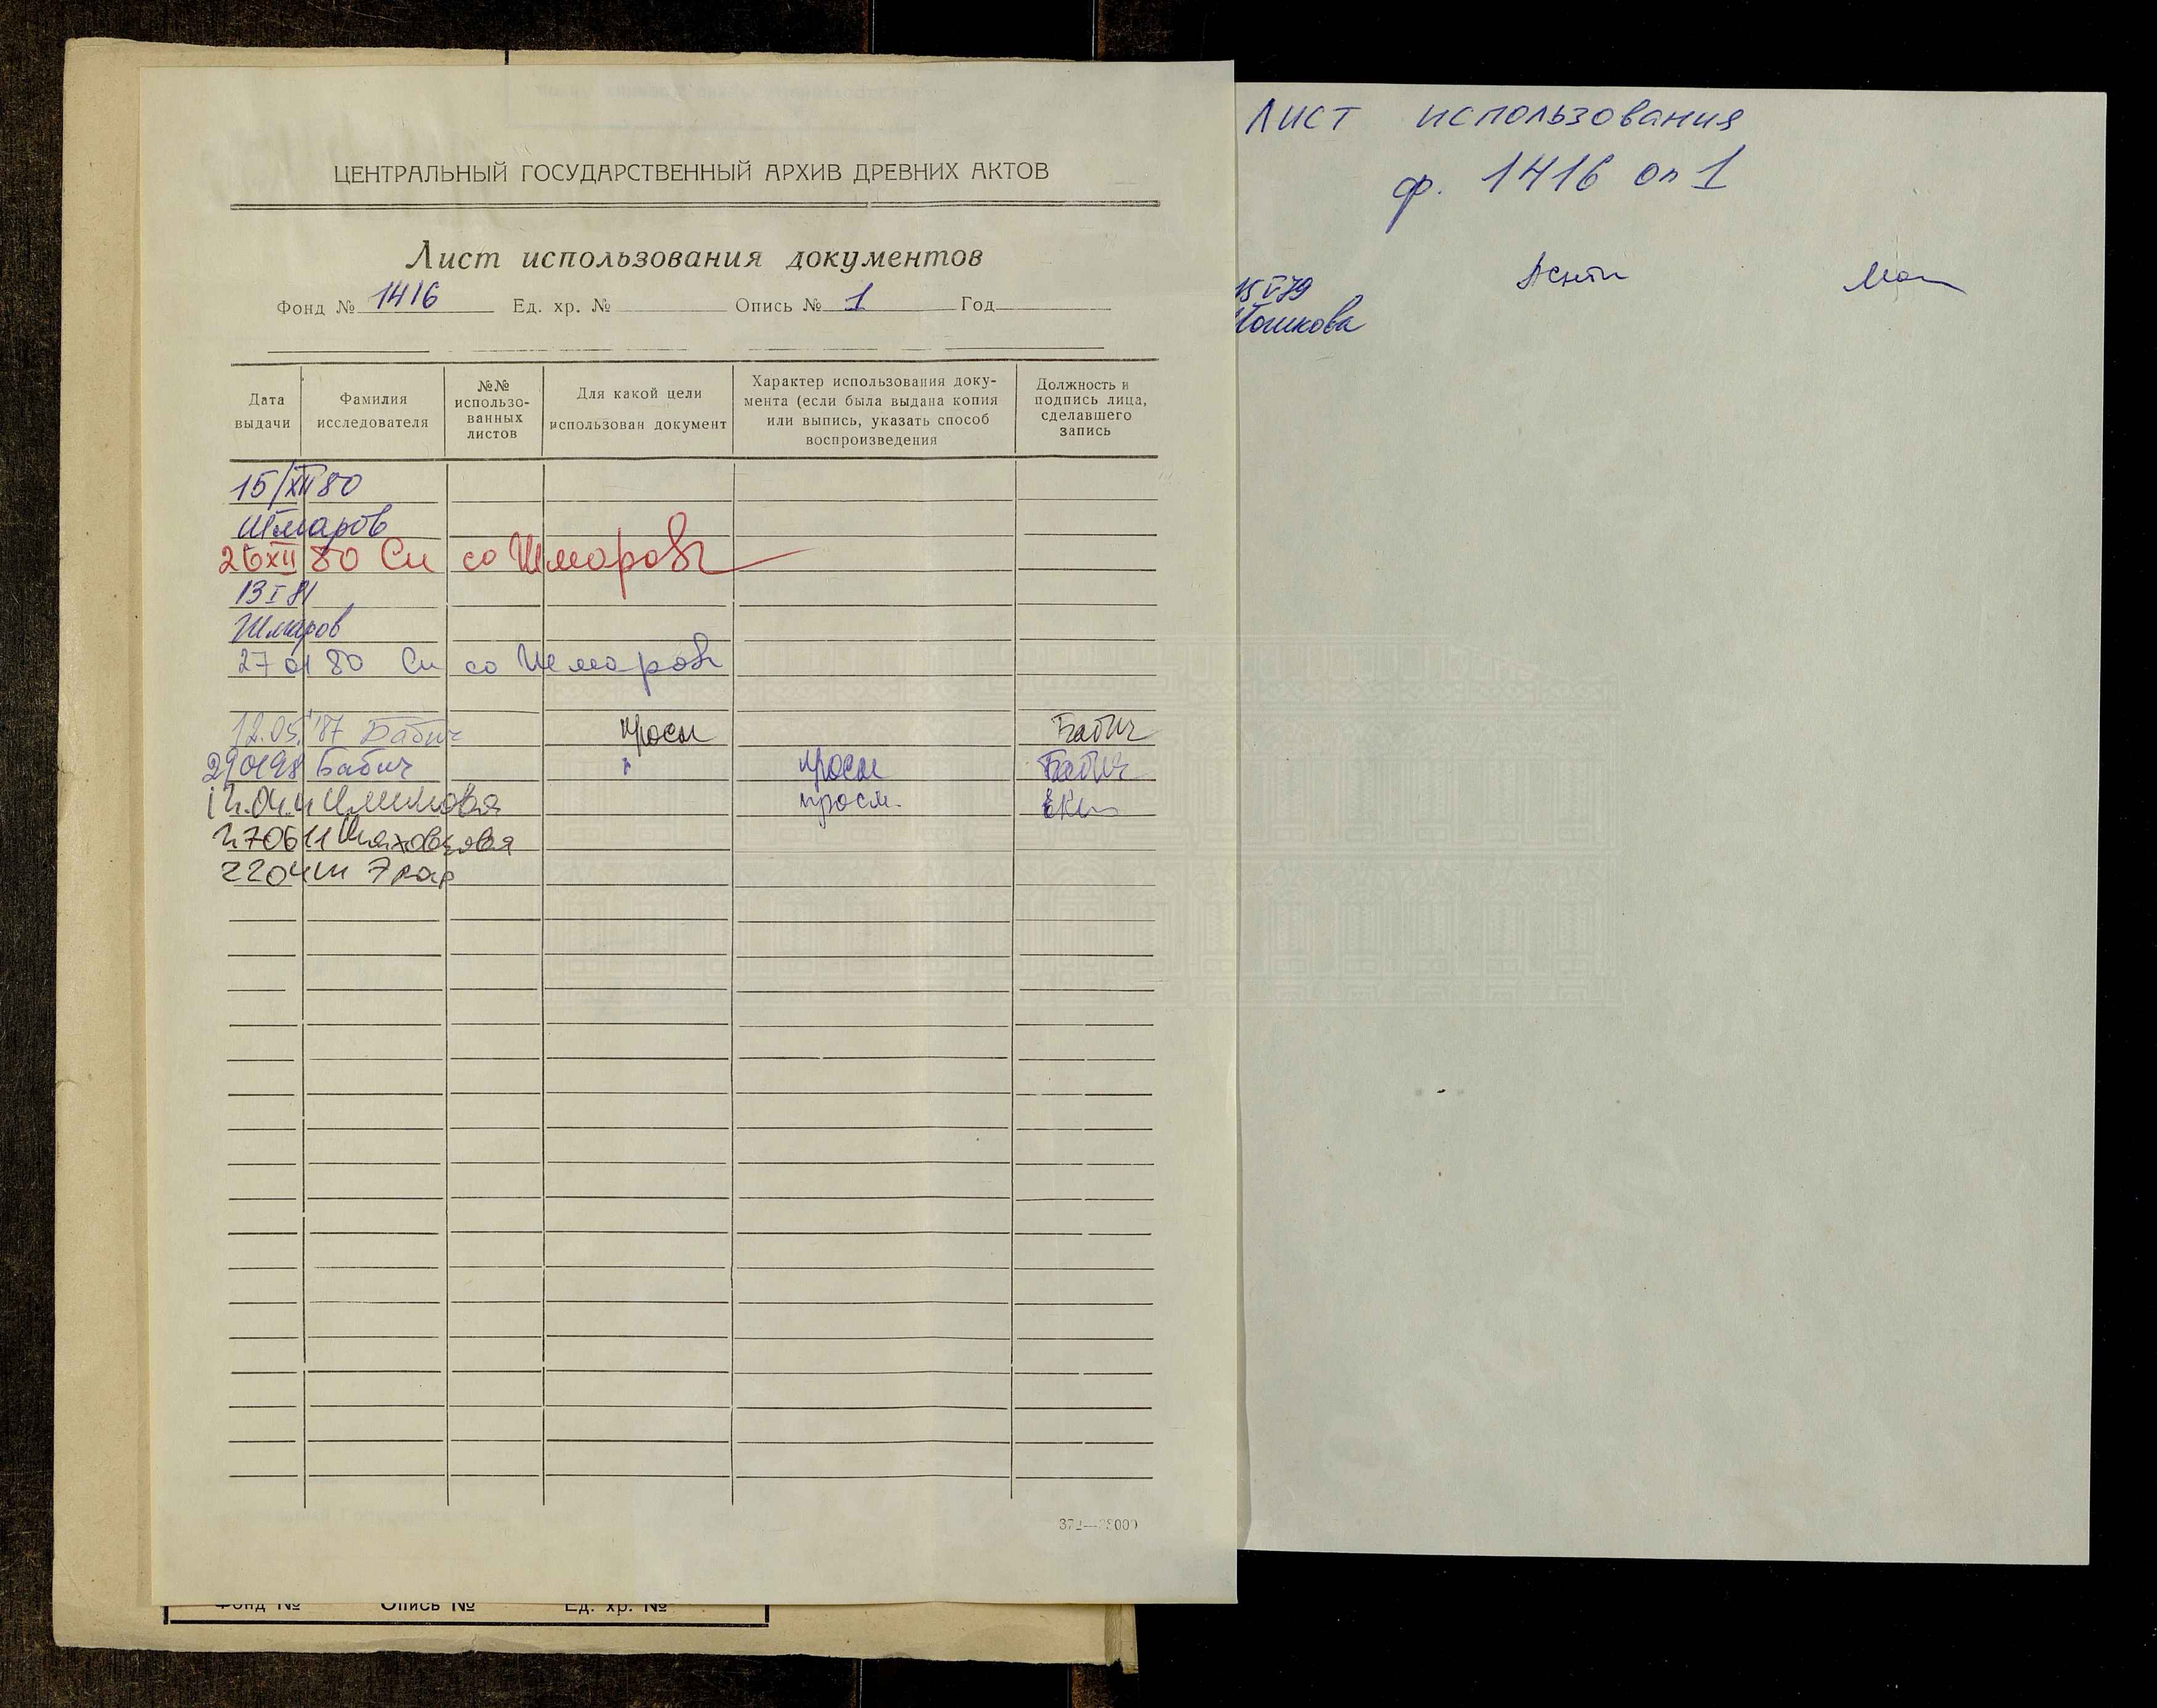 ЦЕНТРАЛЬНЫЙ ГОСУДАРСТВЕННЫЙ АРХИВ ДРЕВНИХ АКТОВ
Лист использования документов
Фонд № 1416 Ед. хр. № Опись № 1 Год
Дата выдачи
Фамилия исследователя
№№ использо-
ванных
листов
Для какой цели
использован документ
Характер использования доку-
мента (если была выдана копия
или выпись, указать способ
воспроизведения
Должность и
подпись лица,
сделавшего
запись
15/XII 80
Шмаров
26 XII 80 См со Шмаров
13 I 81
Шмаров
27 01 80 См со Шмаров
12.05.'87 Бабич просм Бабич
290198 Бабич просм Бабич
просм.
270611
Фонд № Опись № Ед. хр. №
Лист использования
ф. 1416 оп 1
15 V 79